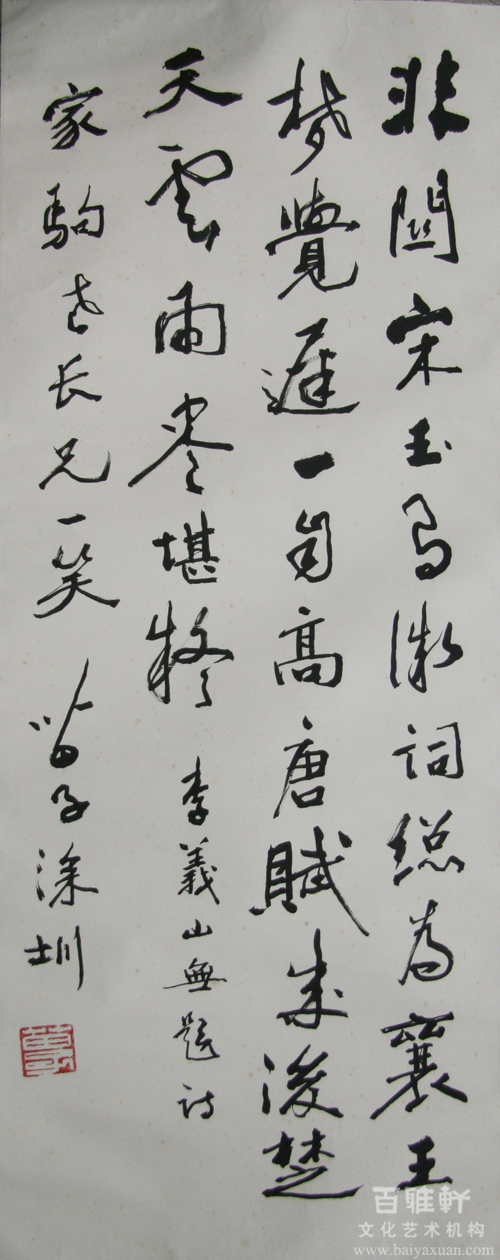 非關宋玉有微詞總為襄王
夢覺遲一自高唐賦成後楚
天雲雨盡堪疑 李義山無題詩
家駒老長兄一笑 深圳
百雅軒
文化艺术机构
www.baiyaxuan.com